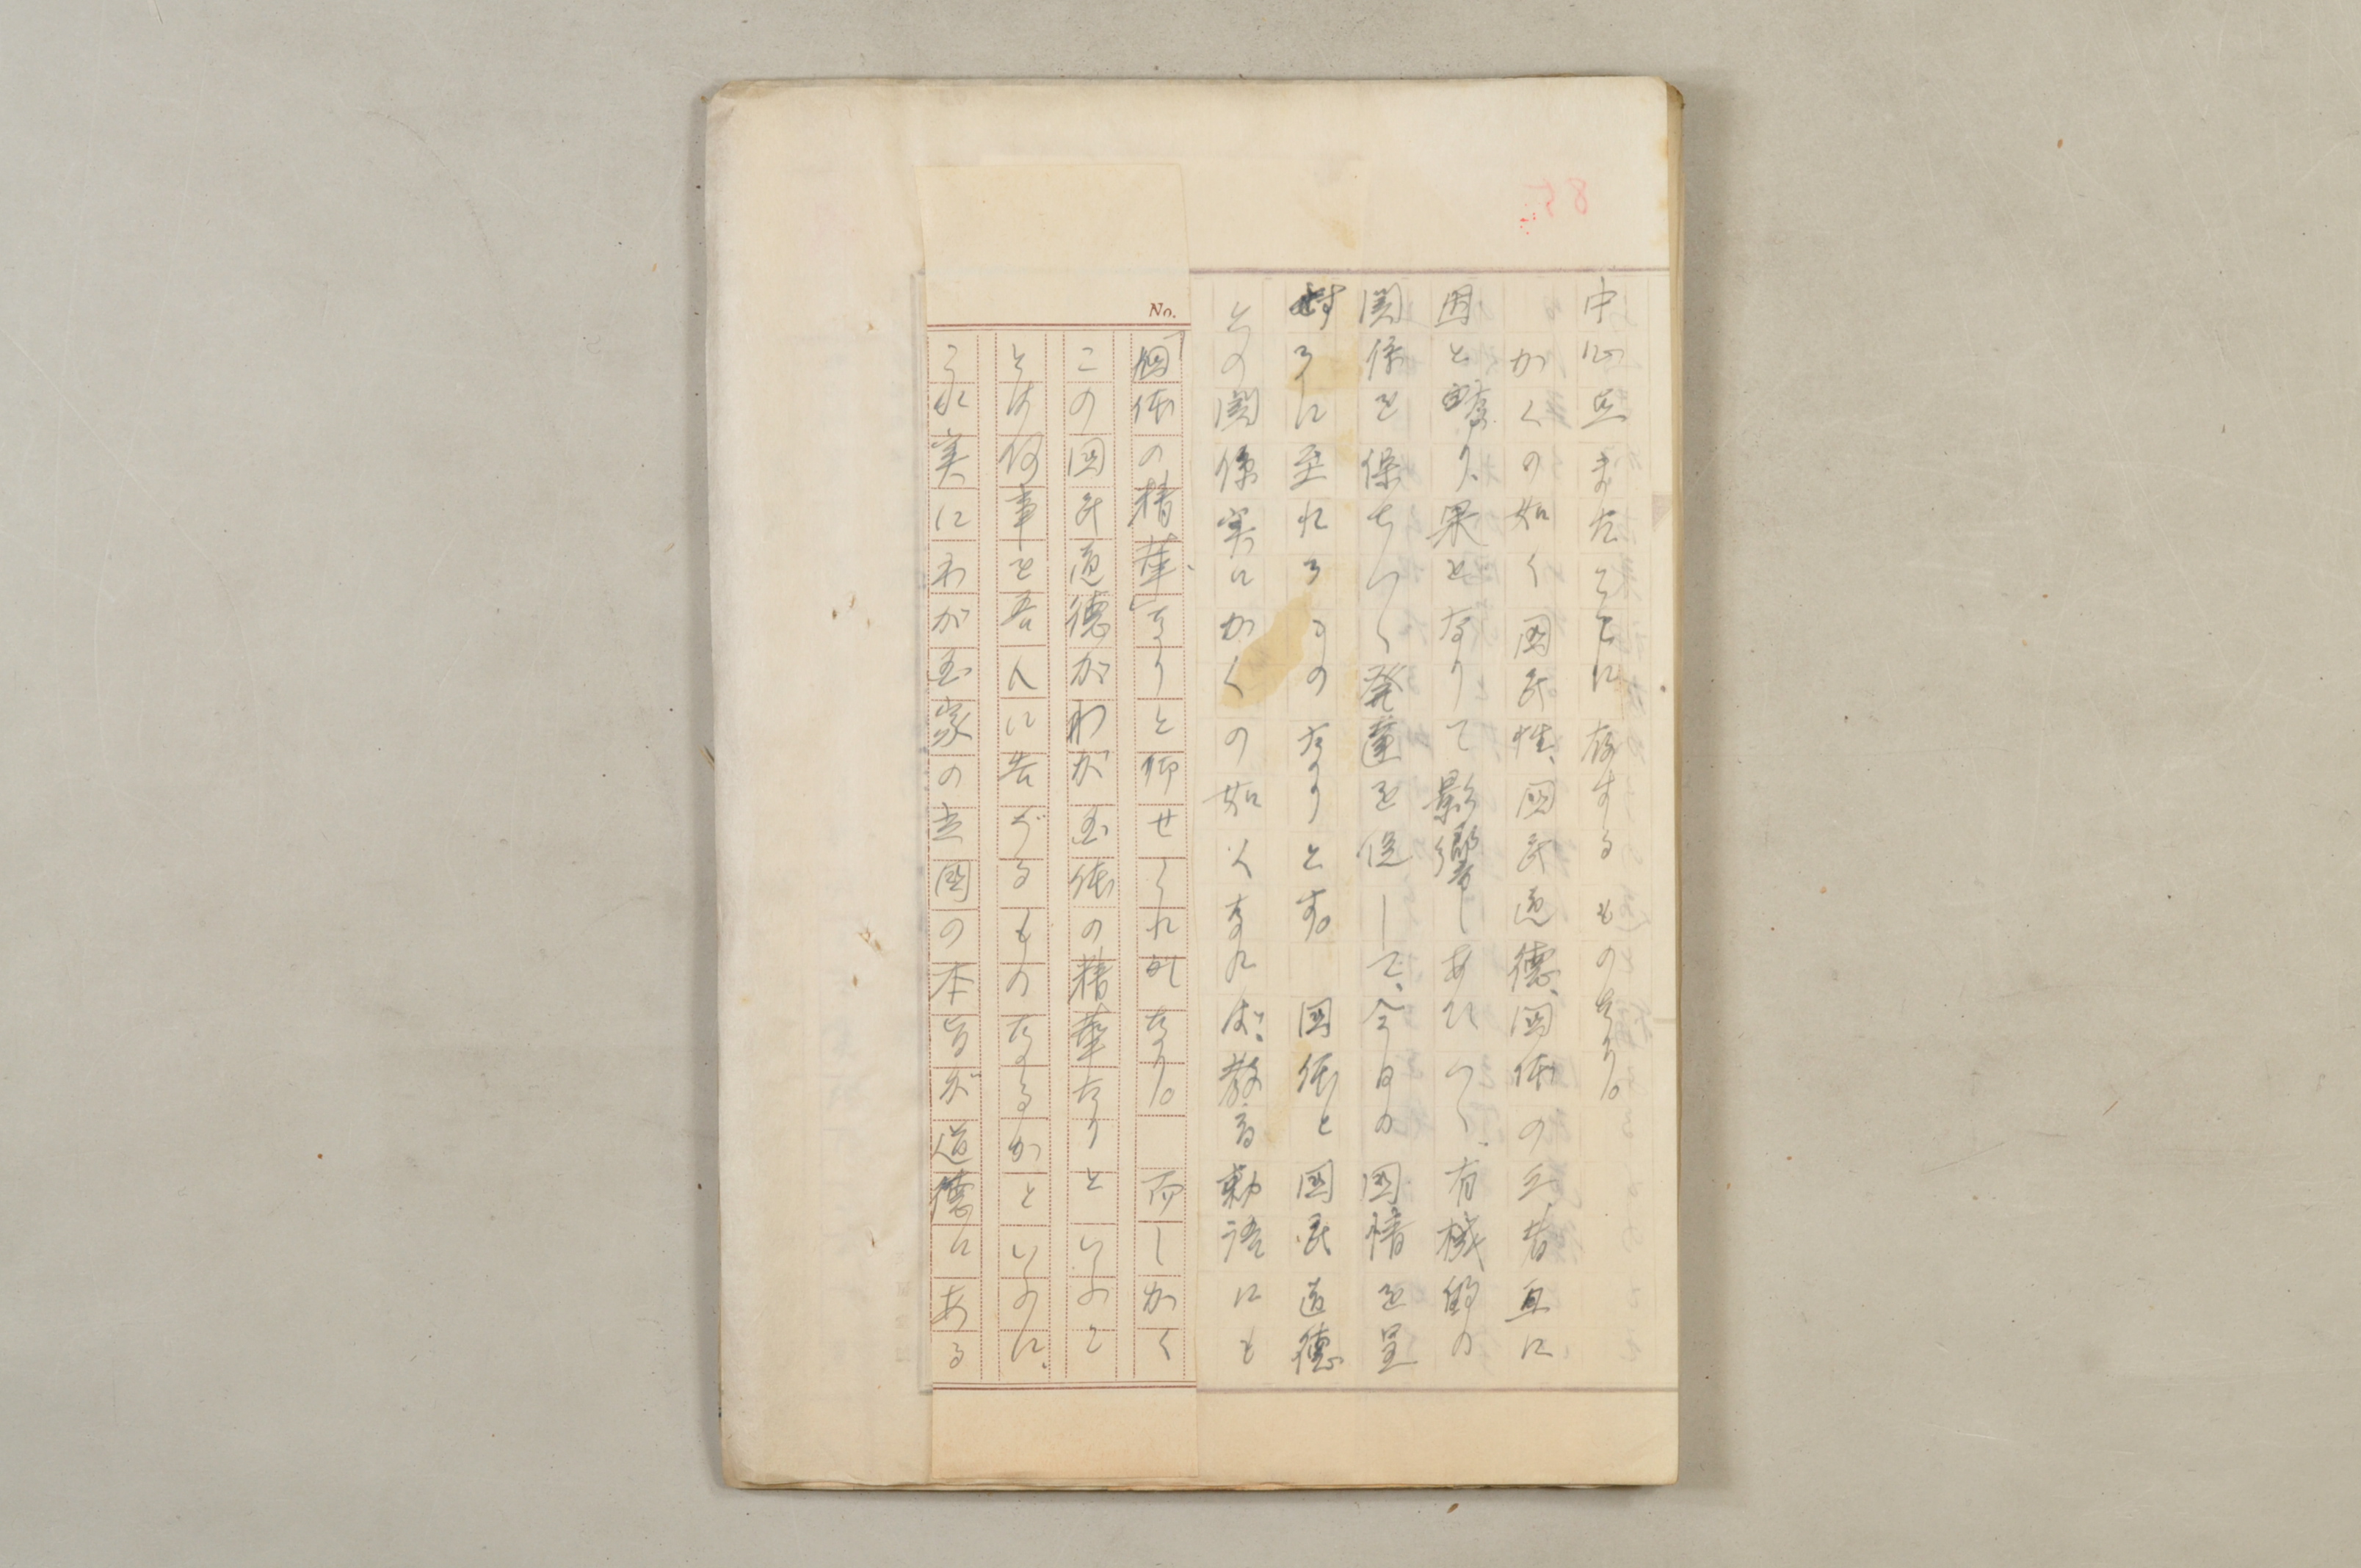 中心点またこゝに存するものなり。
かくの如く国民性、国民道徳、国体の三者互に
因となり、果となりて影響しあひつゝ、有機的の
関係を保ちつゝ発達を促して、今日の国情を呈
するに至れるものなりとす。国体と国民道徳
との関係実にかくの如くなれば、教育勅語にも
No.
「国体の精華」なりと仰せられしなり。而しかく
この国民道徳がわが国体の精華なりといふこ
とは何事を吾人に告ぐるものなるかといふに、
これ実にわが国家の立国の本旨が道徳にある